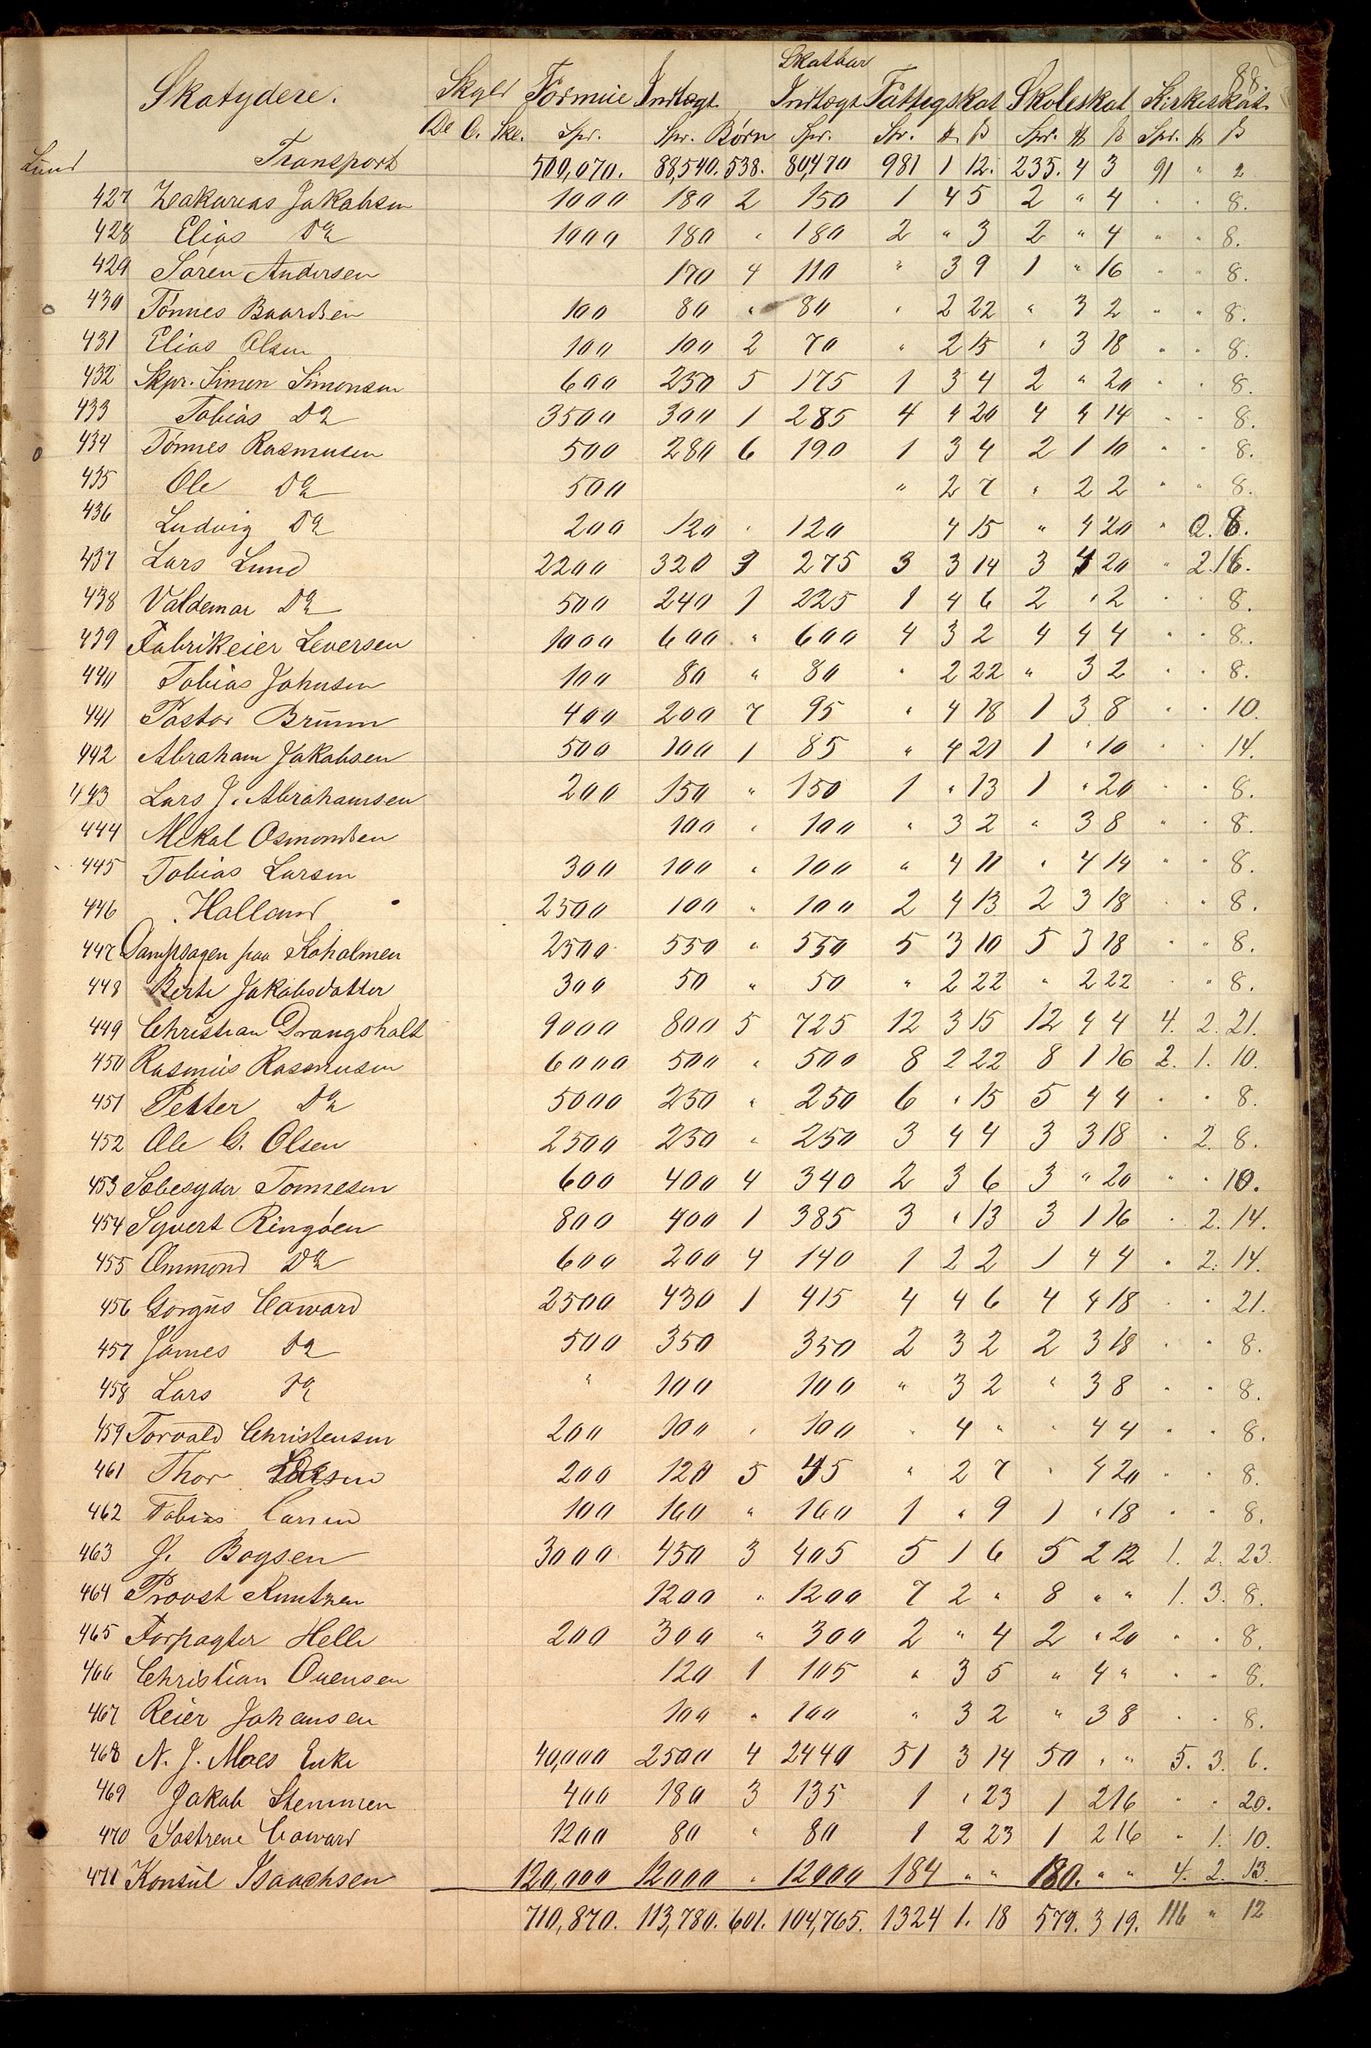 88.
Skatbar
Skatydere. Skyld Formue Indtægt Indtægt Fattigskat Skoleskat Kirkeskat
De O. Ske. Spr. Spr. Børn Spr. Spr. # β Spr. # β Spr. # β
Lund Transport 500,070. 88,540. 538. 80,470 981 1 12. 235. 4 3 91 " 2
427 Zakarias Jakobsen 1000 180 2 150 1 4 5 2 " 4 " " 8.
428 Elias Do 1000 180 " 180 2 " 3 2 " 4 " " 8.
429 Søren Andersen 170 4 110 " 3 9 1 " 16 " " 8.
430 Tønnes Baardsen 100 80 " 80 " 2 22 " 3 2 " " 8.
431 Elias Olsen 100 100 2 70 " 2 15 " 3 18 " " 8.
432 Skpr. Simon Simonsen 600 250 5 175 1 3 4 2 " 20 " " 8.
433 Tobias Do 3500 300 1 285 4 4 20 4 4 14 " " 8.
434 Tønnes Rasmusen 500 280 6 190 1 3 4 2 1 10 " " 8.
435 Ole Do 500 " 2 7 " 2 2 " " 8.
436 Ludvig Do 200 120 " 120 4 15 " 4 20 " 2. 8.
437 Lars Lund 2200 320 3 275 3 3 14 3 4 20 " 2. 16.
438 Valdemar Do 500 240 1 225 1 4 6 2 " 2 " " 8.
439 Fabrikeier Leversen 1000 600 " 600 4 3 2 4 4 4 " " 8.
440 Tobias Johnsen 100 80 " 80 " 2 22 " 3 2 " " 8.
441 Pastor Bruun 400 200 7 95 " 4 18 1 3 8 " " 10.
442 Abraham Jakobsen 500 100 1 85 " 4 21 1 " 10 " " 14.
443 Lars J. Abrahamsen 200 150 " 150 1 " 13 1 " 20 " " 8.
444 Mekal Osmondsen 100 " 100 " 3 2 " 3 8 " " 8.
445 Tobias Larsen 300 100 " 100 " 4 11 " 4 14 " " 8.
446 Halland 2500 100 " 100 2 4 13 2 3 18 " " 8.
447 Dampsagen paa Koholmen 2500 550 " 550 5 3 10 5 3 18 " " 8.
448 Berte Jakobsdatter 300 50 " 50 " 2 22 " 2 22 " " 8.
449 Christian Drangsholt 9000 800 5 725 12 3 15 12 4 4 4. 2. 21.
450 Rasmus Rasmusen 6000 500 " 500 8 2 22 8 1 16 2. 1. 10.
451 Petter Do 5000 250 " 250 6 " 15 5 4 4 " " 8.
452 Ole G. Olsen 2500 250 " 250 3 4 4 3 3 18 " 2. 8.
453 Sæbesyder Tønnesen 600 400 4 340 2 3 6 3 " 20 " " 10.
454 Syvert Ringøen 800 400 1 385 3 " 13 3 1 16 " 2. 14.
455 Ommond Do 600 200 4 140 1 2 2 1 4 4 " 2. 14.
456 Gorgus Caward 2500 430 1 415 4 4 6 4 4 18 " " 21.
457 James Do 500 350 350 2 3 2 2 3 18 " " 8.
458 Lars Do " 100 100 " 3 2 " 3 8 " " 8.
459 Torvald Christensen 200 100 " 100 " 4 " " 4 4 " " 8.
461 Thor Larsen 200 120 5 45 " 2 7 " 4 20 " " 8.
462 Tobias Larsen 100 160 " 160 1 " 9 1 " 18 " " 8.
463 J. Bogsen 3000 450 3 405 5 1 6 5 2 12 1. 2. 23.
464 Provst Kuntzen 1200 " 1200 7 2 " 8 " " 1. 3. 8.
465 Forpagter Helle 200 300 " 300 2 " 4 2 " 20 " " 8.
466 Christian Ouensen 120 1 105 " 3 5 " 4 " " " 8.
467 Reier Johansen 100 " 100 " 3 2 " 3 8 " " 8.
468 N. J. Moes Enke 40,000 2500 4 2440 51 3 14 50 " " 5. 3. 6.
469 Jakob Stemmen 400 180 3 135 1 " 23 1 2 16 " " 20.
470 Søstrene Caward 1200 80 " 80 1 2 23 1 2 16 " 1. 10.
471 Konsul Isaachsen 120,000 12000 " 12000 184 " " 180. " " 4. 2. 13.
710,870. 113,780. 601. 104,765. 1324 1. 18 579. 3 19. 116 " 12